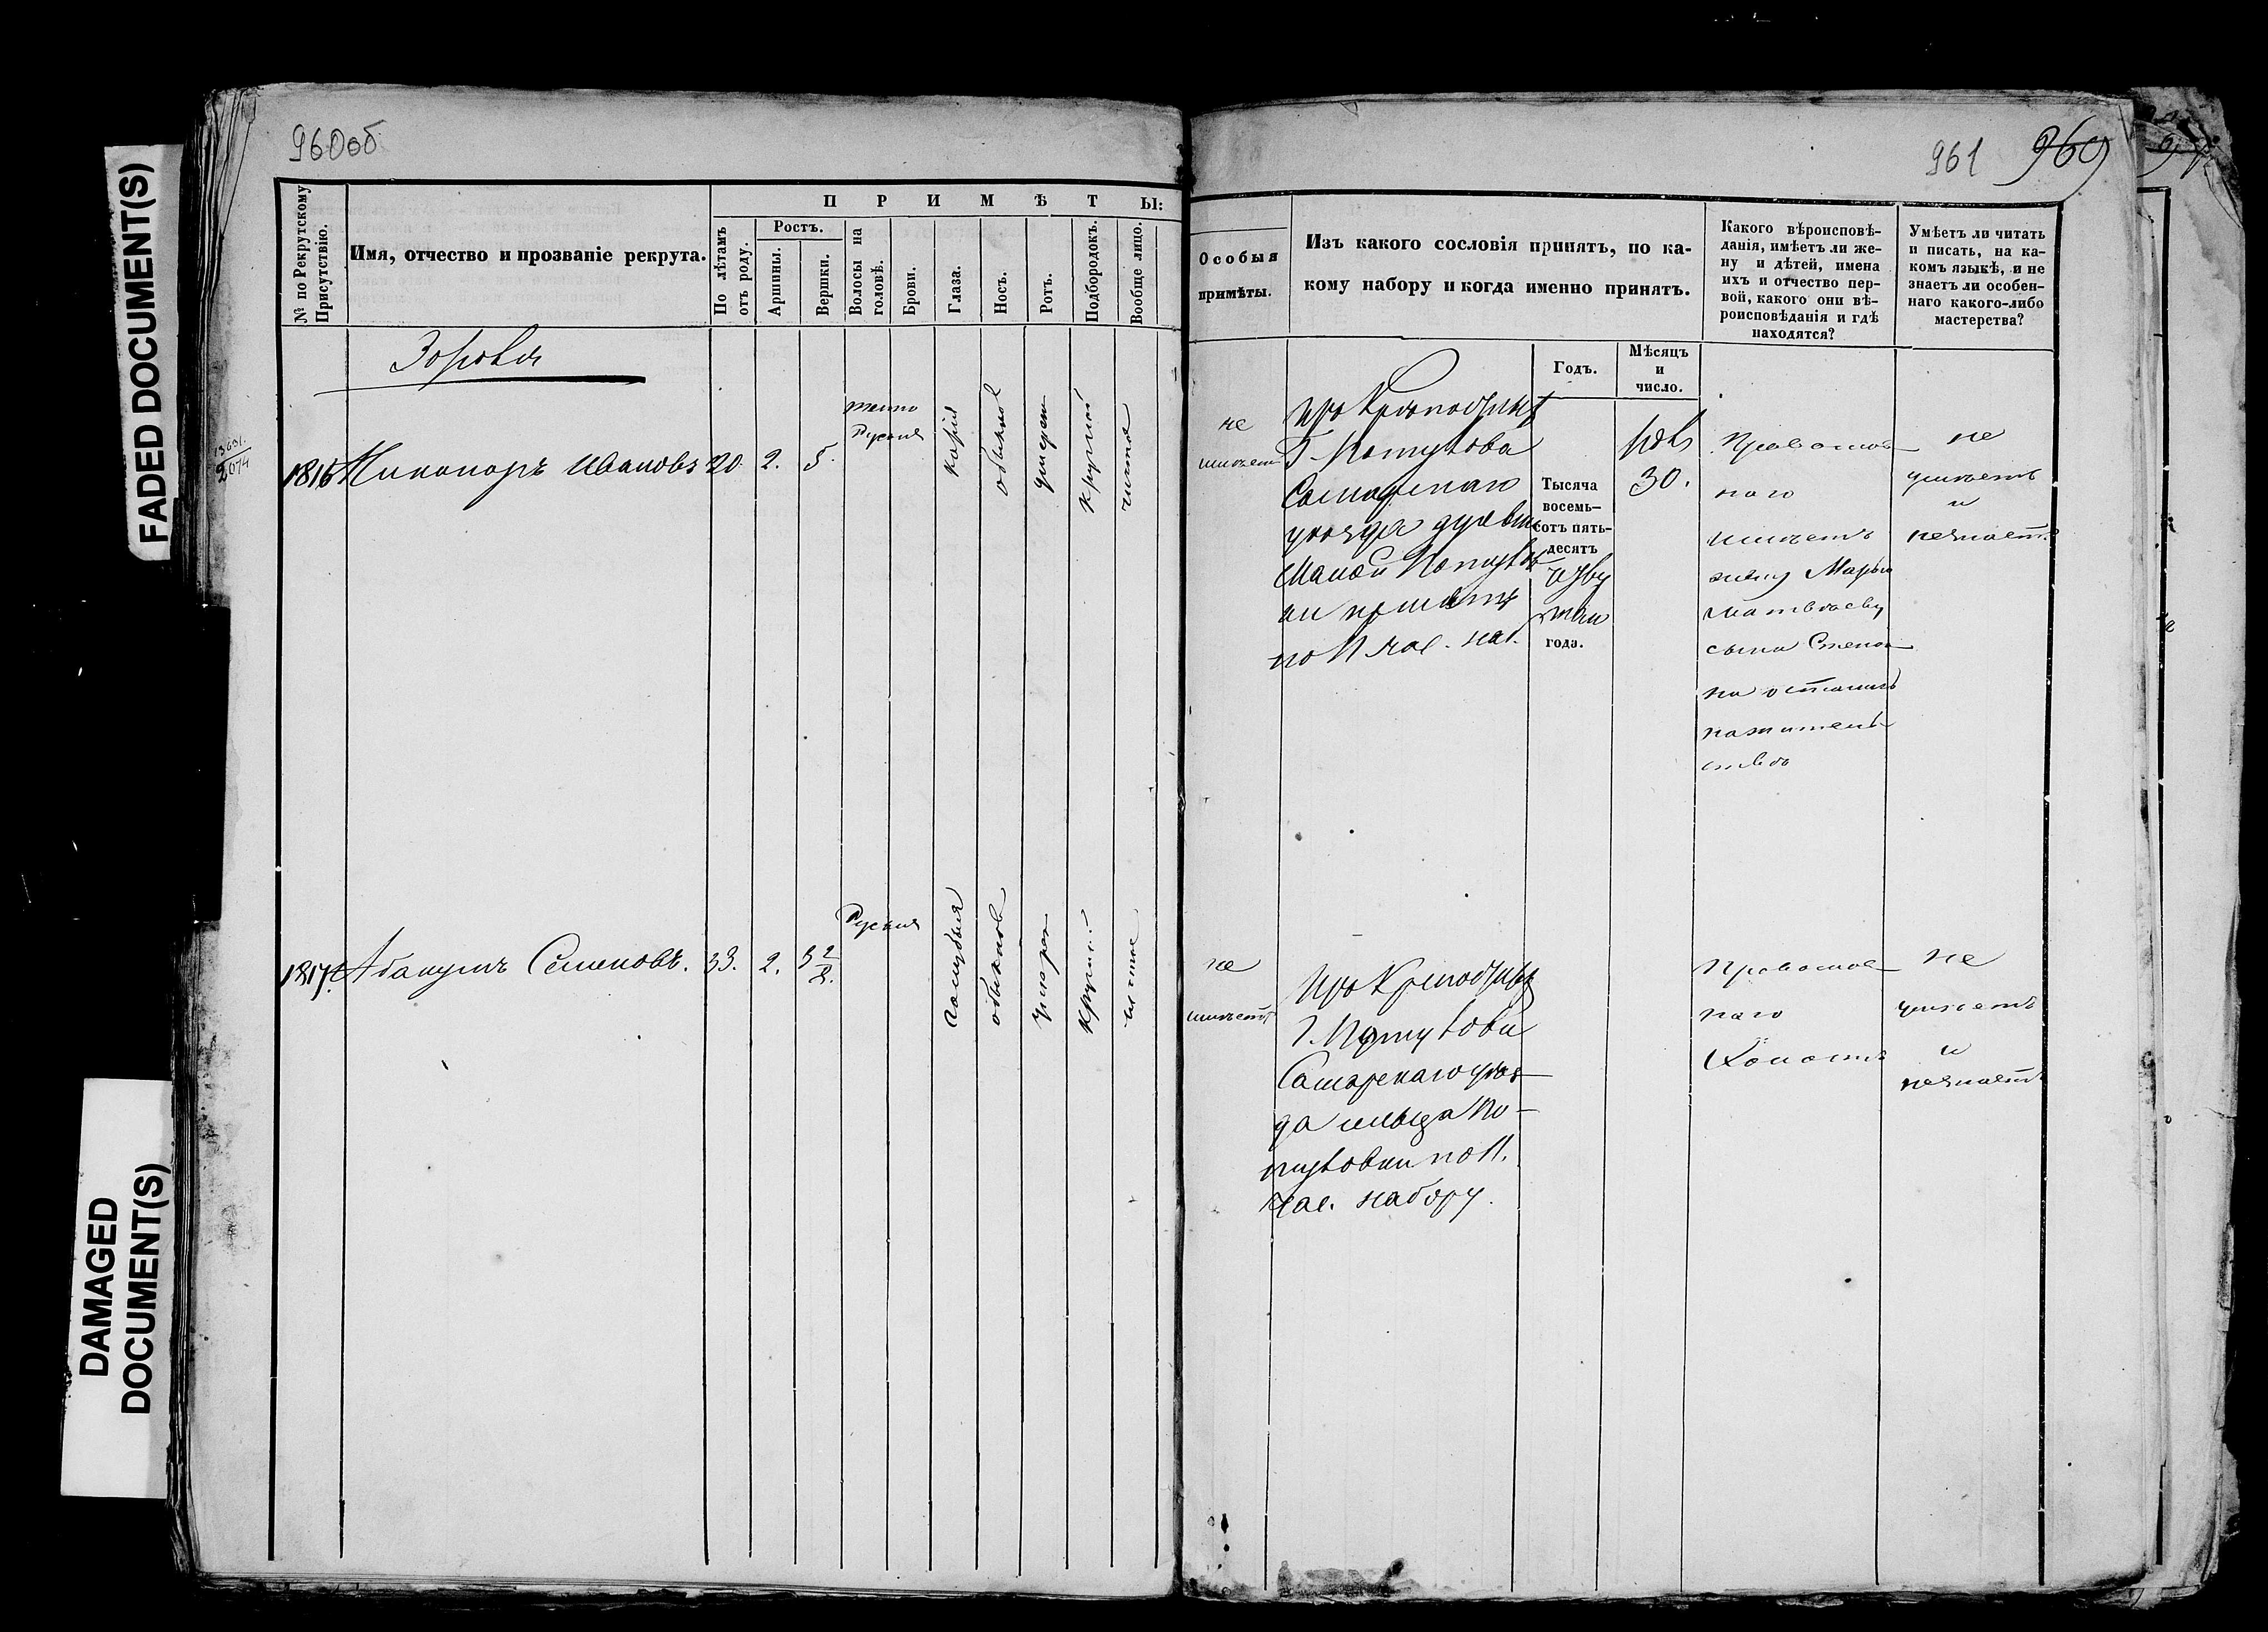 FADED DOCUMENT(S)
DAMAGED
DOCUMENT(S)
960об
№ по Рекрутскому
Присутствію.
Имя, отчество и прозваніе рекрута.
П Р И М Ѣ Т Ы:
По лѣтамъ
отъ роду.
Ростъ.
Аршины.
Вершки.
Волосы на
головѣ.
Брови.
Глаза.
Носъ.
Ротъ.
Подбородокъ.
Вообще лицо.
2074
1816
Никаноръ Ивановъ
20
2.
5.
темно
Русыя
карія
обыкнов
умерен
круглый
чистое
1817.
Абакумъ Семеновъ.
33.
2.
5 2/8.
Русыя
голубыя
обыкнов
умерен
круглый
чистое
961
969
Особыя
примѣты.
Изъ какого сословія принятъ, по ка-
кому набору и когда именно принятъ.
Годъ.
Мѣсяцъ
и
число.
Какого вѣроисповѣ-
данія, имѣетъ ли же-
ну и дѣтей, имена
ихъ и отчество пер-
вой, какого они вѣ-
роисповѣданія и гдѣ
находятся?
Умѣетъ ли читать
и писать, на ка-
комъ языкѣ, и не
знаетъ ли особен-
наго какого-либо
мастерства?
не
имѣетъ
Г.
Самарскаго
уѣзда
Малой
по
Тысяча
восемь-
сотъ пять-
десятъ
года.
30.
Православ
наго
имѣетъ
жену Марью
Матвѣеву
сына Степа
на
жител
ствѣ
не
умѣетъ
и
незнаетъ
не
имѣетъ
Г.
Самарскаго уѣз
да сельца
набору.
Православ
наго
Холостъ
не
умѣетъ
и
незнаетъ